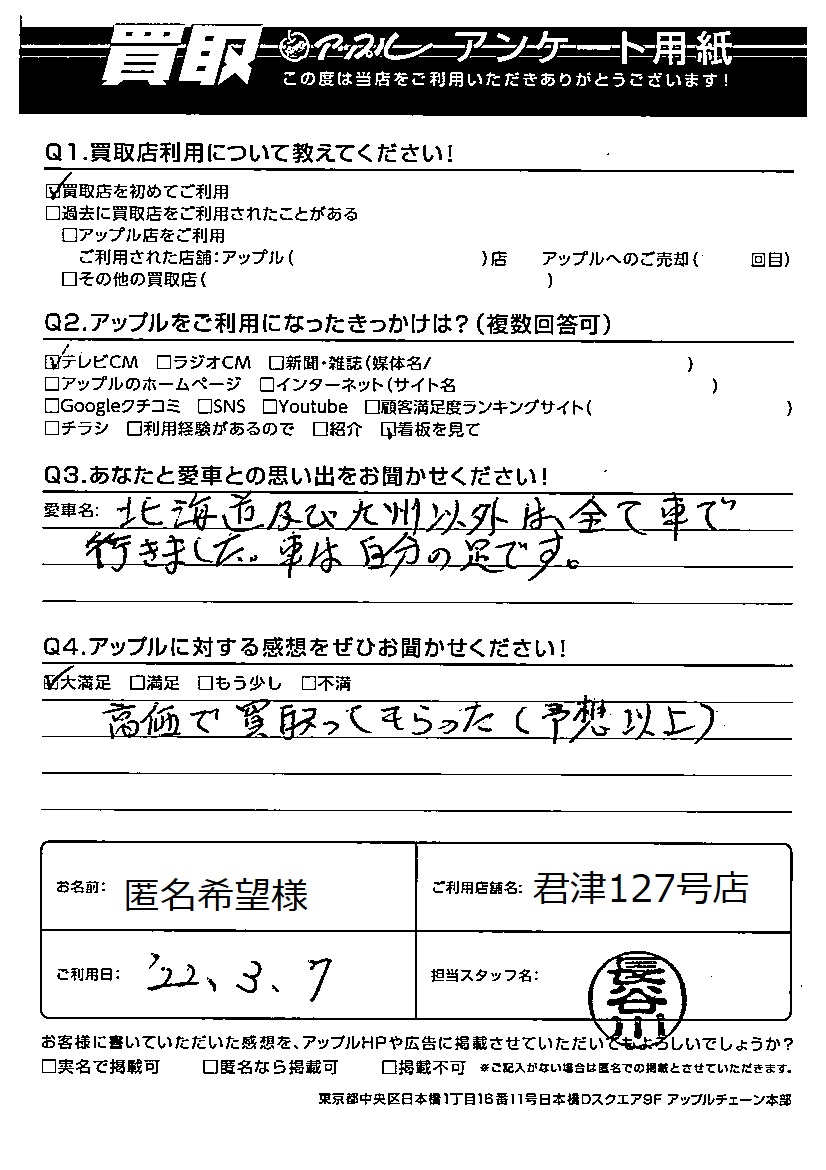 買取 アップル アンケート用紙
この度は当店をご利用いただきありがとうございます！
Q1.買取店利用について教えてください！
☑買取店を初めてご利用
□過去に買取店をご利用されたことがある
□アップル店をご利用
ご利用された店舗：アップル（ ）店 アップルへのご売却（ 回目）
□その他の買取店（ ）
Q2.アップルをご利用になったきっかけは？（複数回答可）
☑テレビCM □ラジオCM □新聞・雑誌（媒体名/ ）
□アップルのホームページ □インターネット（サイト名 ）
□Googleクチコミ □SNS □Youtube □顧客満足度ランキングサイト（ ）
□チラシ □利用経験があるので □紹介 ☑看板を見て
Q3.あなたと愛車との思い出をお聞かせください！
愛車名： 北海道及び九州以外は、全て車で
行きました。車は自分の足です。
Q4.アップルに対する感想をぜひお聞かせください！
☑大満足 □満足 □もう少し □不満
高価で買取ってもらった（予想以上）
お名前： 匿名希望様 ご利用店舗名： 君津127号店
ご利用日： '22、3、7 担当スタッフ名： 長谷川
お客様に書いていただいた感想を、アップルHPや広告に掲載させていただいてもよろしいでしょうか？
□実名で掲載可 □匿名なら掲載可 □掲載不可 ※ご記入がない場合は匿名での掲載とさせていただきます。
東京都中央区日本橋1丁目16番11号日本橋Dスクエア9F アップルチェーン本部